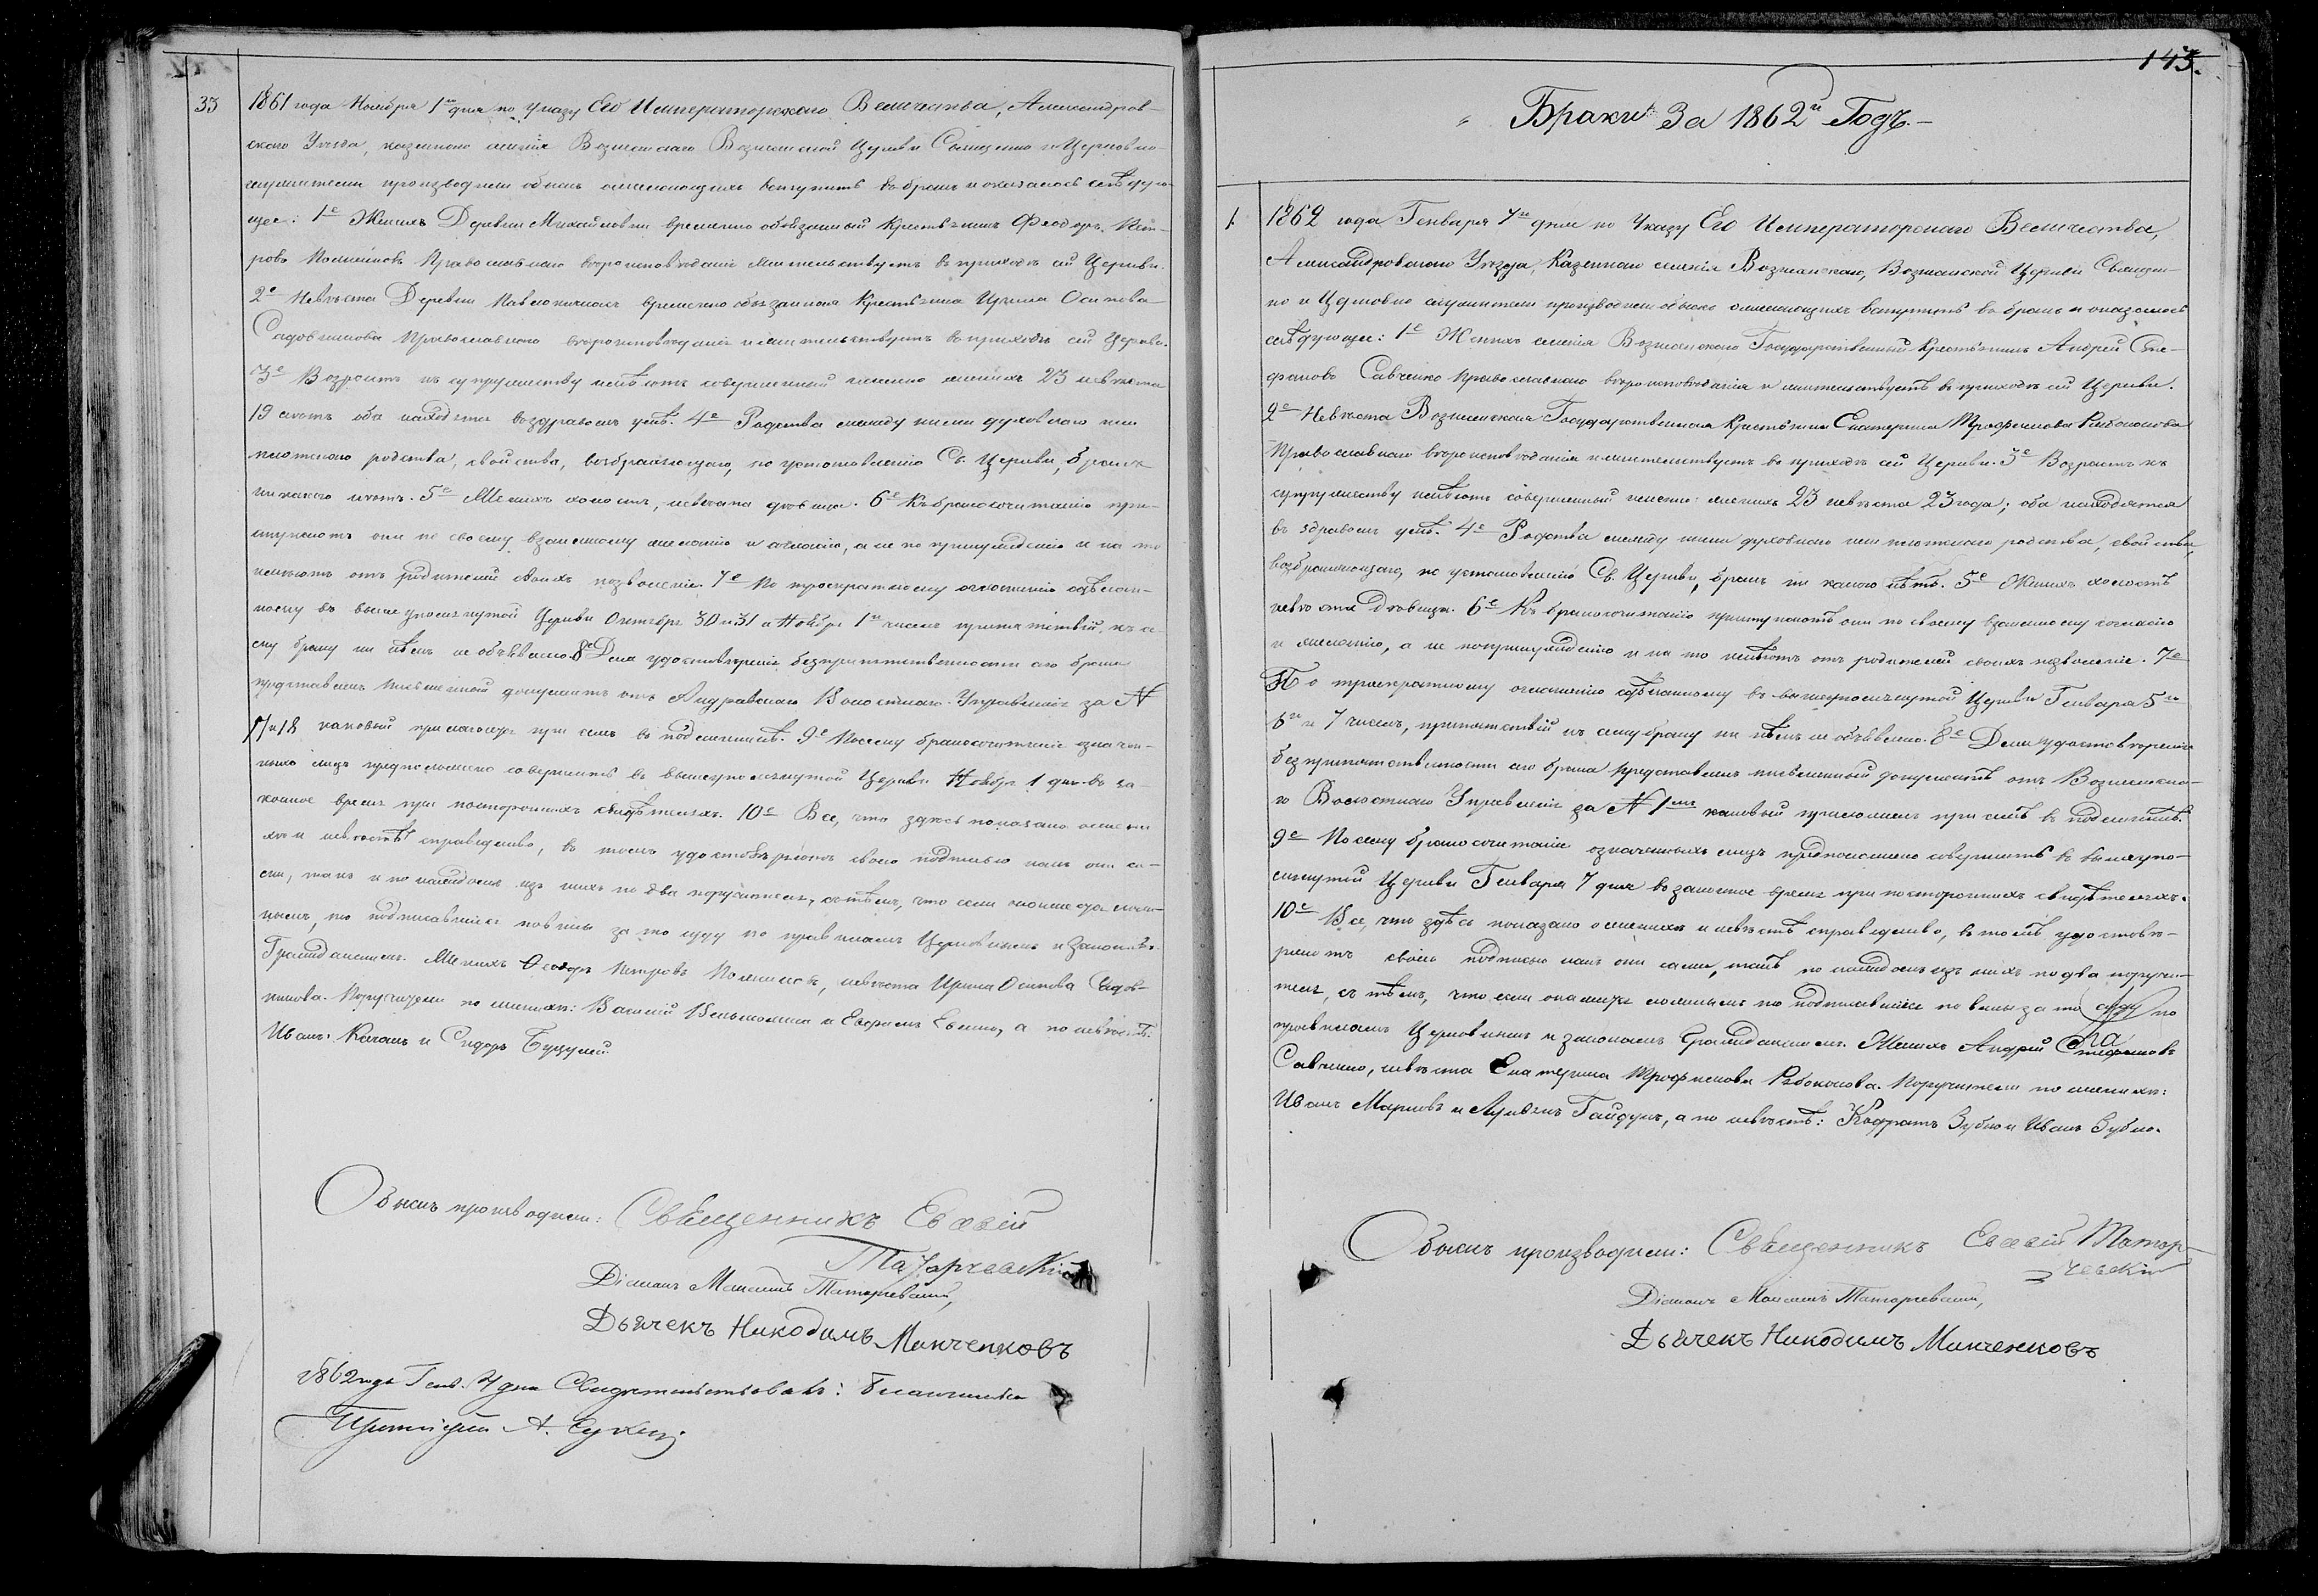 33
1861 года Ноября 1го дня по Указу Его Императорскаго Величества, Александров-
скаго Уезда, казеннаго селенія Вознесенскаго Вознесенской Церкви Священно и Церковно-
служители производили обыск о желающихъ вступить въ бракъ и оказалось слѣдую-
щее: 1е Женихъ Деревни Михайловки временно обязанный Крестьянинъ Феодоръ Пет-
ровъ Православнаго вѣроисповѣданія жительствуетъ въ приходѣ сей Церкви.
2е Невѣста Деревни временно обязанная Крестьянка Ирина Осипова
Садовникова Православнаго вѣроисповѣданія и жительствуетъ въ приходѣ сей Церкви.
3е Возрастъ къ супружеству имѣютъ совершенный именно женихъ 23 невѣста
19 лѣтъ оба находятся въ здравомъ умѣ. 4е Родства между ними духовнаго или
плотскаго родства, свойства, возбраняющаго, по установленію Св. Церкви, бракъ
никакого нѣтъ. 5е Женихъ холостъ, невѣста дѣвица. 6е Къ бракосочетанію при-
ступаютъ они по своему взаимному желанію и согласію, а не по принужденію и на то
имѣютъ отъ родителей своихъ позволеніе. 7е По троекратному оглашенію сдѣлан-
ному въ вышеупомянутой Церкви Октября 30 и 31 и Ноября 1го числъ препятствій къ се-
му браку ни кѣмъ не объявлено. 8е Для удостовѣренія безпрепятственности сего брака
представленъ письменный документъ отъ Волостнаго Управленія за N
17 и 18 каковый прилагаю при семъ въ подлинникѣ. 9е Посему бракосочетаніе означен-
ныхъ лицъ предположено совершить въ вышеупомянутой Церкви Ноября 1 дня въ за-
конное время при постороннихъ свидѣтеляхъ. 10е Все, что здѣсь показано о жени-
хѣ и невѣстѣ справедливо, въ томъ удостовѣряютъ своею подписью какъ они са-
ми, такъ и по каждомъ изъ нихъ по два поручителя, съ тѣмъ, что если окажется лож-
нымъ, то подписавшіеся повинны за то суду по правиламъ Церковнымъ и Законамъ
Гражданскимъ. Женихъ Феодоръ Петровъ, невѣста Ирина Осипова Садов-
никова. Поручители по женихѣ: Василій и Ефремъ, а по невѣстѣ:
Иванъ и Сидоръ
Обыскъ производили: Священникъ Евсевій
Татарчевскій
Діаконъ Татарчевскій,
Дьячекъ Никодимъ Минченковъ
1862 года Генв. 7 дня Свидетельствовалъ: Благочинный
Протоіерей А.
143.
Браки За 1862й Годъ.
1. 1862 года Генваря 7го дня по Указу Его Императорскаго Величества,
Александровскаго Уезда, Казеннаго селенія Вознесенскаго, Вознесенской Церкви Священ-
но и Церковно служители производили обыскъ о желающихъ вступить въ бракъ и оказалось
слѣдующее: 1е Женихъ селенія Вознесенскаго Государственный Крестьянинъ Андрей Сте-
фановъ Савченко Православнаго вѣроисповѣданія и жительствуетъ въ приходѣ сей Церкви.
2е Невѣста Вознесенская Государственная Крестьянка Екатерина Трофимова Рябоконова
Православнаго вѣроисповѣданія и жительствуетъ въ приходѣ сей Церкви. 3е Возрастъ къ
супружеству имѣютъ совершенный именно: женихъ 23 невѣста 23 года; оба находятся
въ здравомъ умѣ. 4е Родства между ними духовнаго или плотскаго родства, свойства,
возбраняющаго, по установленію Св. Церкви, бракъ ни какого нѣтъ. 5е Женихъ холостъ
невѣста Дѣвица. 6е Къ бракосочетанію приступаютъ они по своему взаимному согласію
и желанію, а не по принужденію и на то имѣютъ отъ родителей своихъ позволеніе. 7е
По троекратному оглашенію сдѣланному въ вышеупомянутой Церкви Генваря 5го
6го и 7 числъ, препятствій къ сему браку ни кѣмъ не объявлено. 8е Для удостовѣренія
безпрепятственности сего брака представленъ письменный документъ отъ Вознесенска-
го Волостнаго Управленія за N 1мъ каковый приложенъ при семъ въ подлинникѣ.
9е Посему бракосочетаніе означенныхъ лицъ предположено совершить въ вышеупо-
мянутой Церкви Генваря 7 дня въ законное время при постороннихъ свидѣтеляхъ.
10е Все, что здѣсь показано о женихѣ и невѣстѣ справедливо, въ томъ удостовѣ-
ряютъ своею подписью какъ они сами, такъ по каждомъ изъ нихъ по два поручи-
теля, съ тѣмъ, что если окажется ложнымъ то подписавшіеся повинны за то суду по
правиламъ Церковнымъ и законамъ Гражданскимъ. Женихъ Андрей Стефановъ
Савченко, невѣста Екатерина Трофимова Рябоконова. Поручители по женихѣ:
Иванъ Марковъ и Гайдукъ, а по невѣстѣ: Кодратъ Зубко и Иванъ Зубко.
Обыскъ производили: Священникъ Евсевій Татар-
чевскій
Діаконъ Татарчевскій,
Дьячекъ Никодимъ Минченковъ